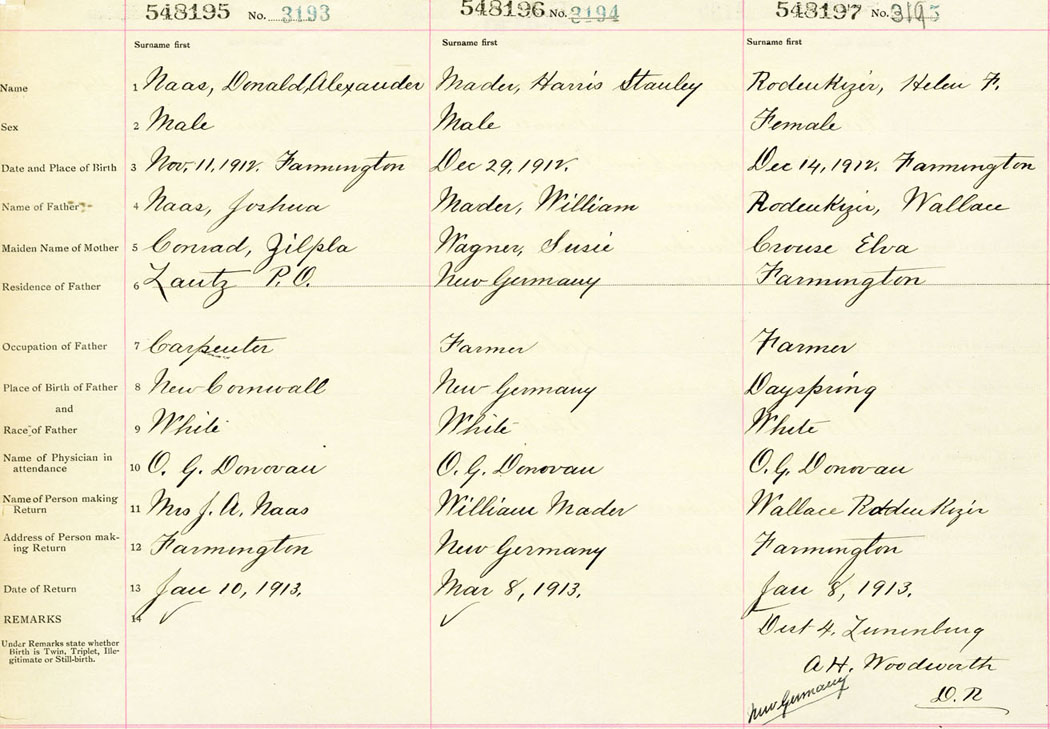 548195 No. 3193 548196 No. 3194 548197 No. 3195
Surname first Surname first Surname first
Name 1 Naas, Donald Alexander Mader, Harris Stanley Rodenkizir, Helen F.
Sex 2 Male Male Female
Date and Place of Birth 3 Nov. 11, 1912. Farmington Dec 29, 1912. Dec 14, 1912. Farmington
Name of Father 4 Naas, Joshua Mader, William Rodenkizir, Wallace
Maiden Name of Mother 5 Conrad, Zilpla Wagner, Susie Crouse Elva
Residence of Father 6 Lantz P.O. New Germany Farmington
Occupation of Father 7 Carpenter Farmer Farmer
Place of Birth of Father 8 New Cornwall New Germany Dayspring
and
Race of Father 9 White White White
Name of Physician in
attendance 10 O. G. Donovan O. G. Donovan O. G. Donovan
Name of Person making
Return 11 Mrs J. A. Naas William Mader Wallace Rodenkizir
Address of Person mak-
ing Return 12 Farmington New Germany Farmington
Date of Return 13 Jan 10, 1913. Mar 8, 1913. Jan 8, 1913.
REMARKS 14 ✓ ✓
Dist 4. Lunenburg
Under Remarks state whether
Birth is Twin, Triplet, Ille-
gitimate or Still-birth.
A. H. Woodworth
New Germany D. R